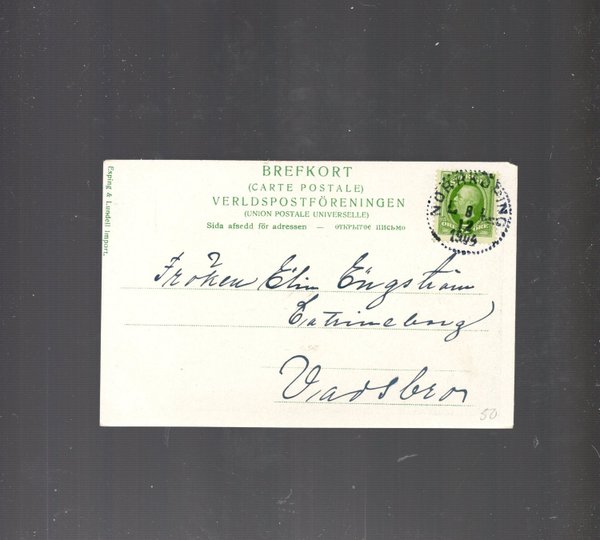 BREFKORT
(CARTE POSTALE)
VERLDSPOSTFÖRENINGEN
(UNION POSTALE UNIVERSELLE)
Sida afsedd för adressen — ОТКРЫТОЕ ПИСЬМО
Esping & Lundell Import.
NORRKÖPING
8
12
Fröken Elin Engström
Catrineborg
Vadsbro
50